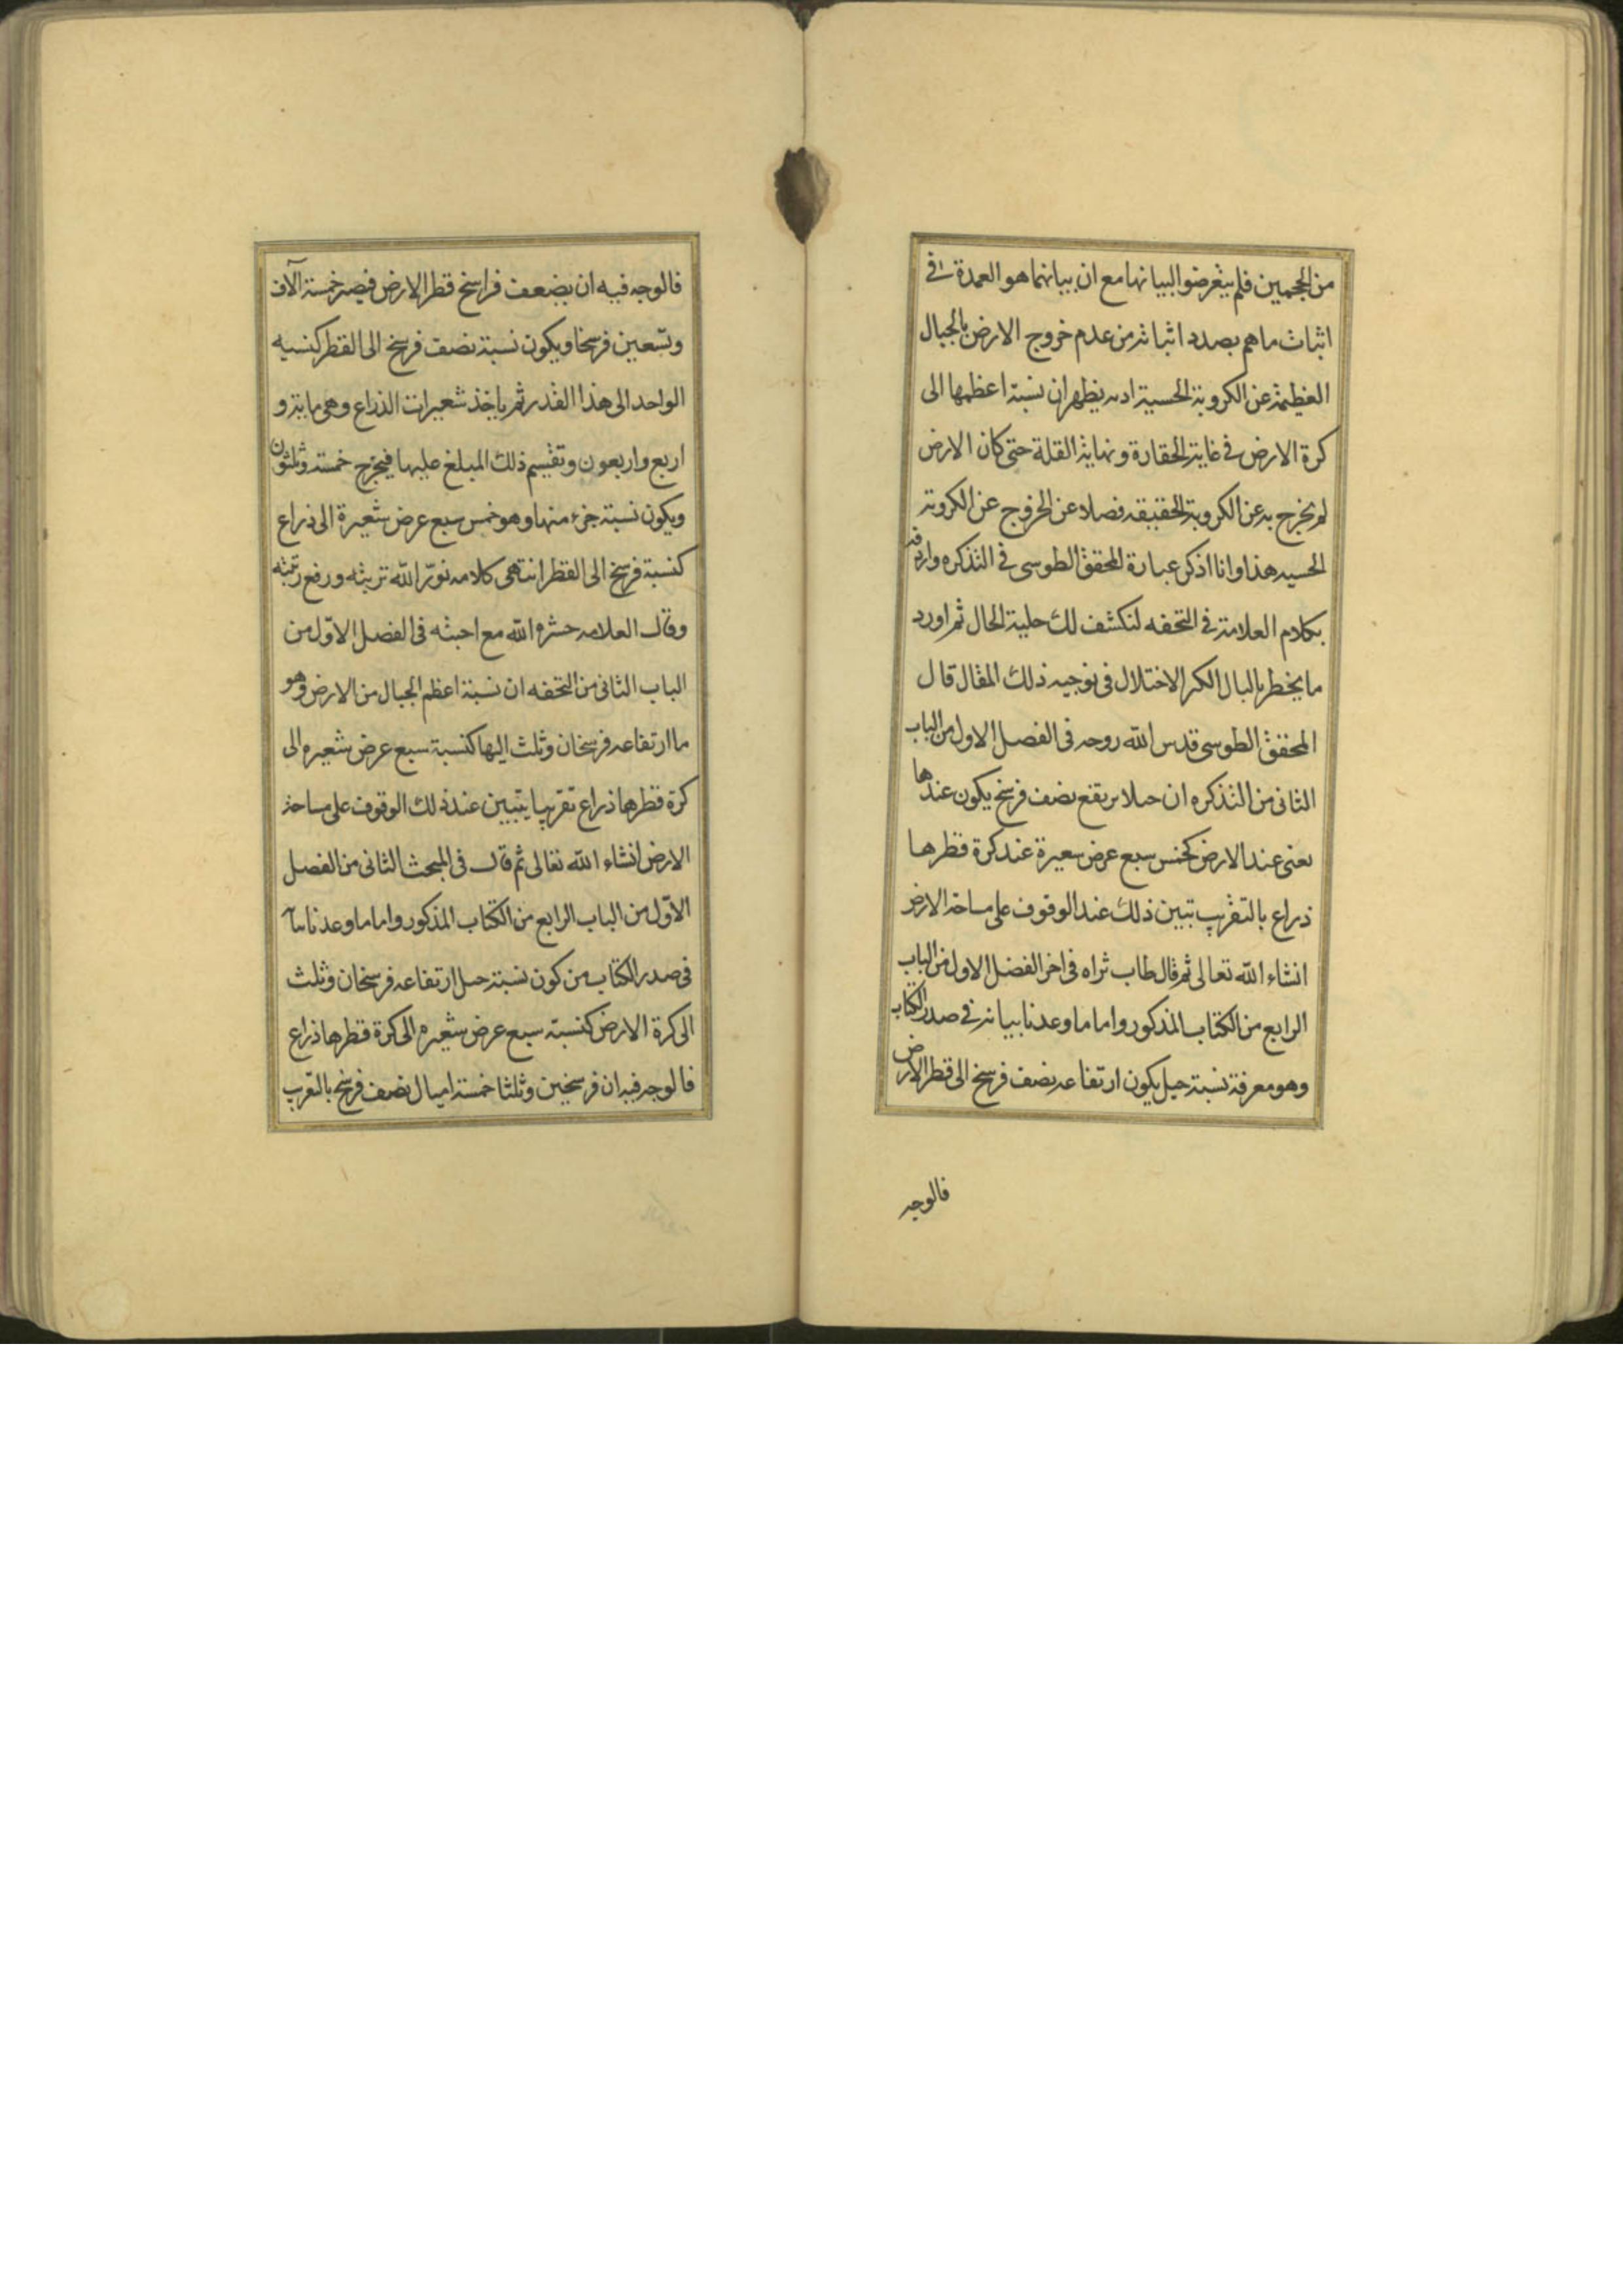 من الحجمين فلم يتعرضوا لبيانها مع ان بيانهما هو العمدة في
اثبات ما هم بصدد اثباته من عدم خروج الارض بالجبال
العظيمة عن الكروية الحسية اذ به يظهر ان نسبة اعظمها الى
كرة الارض في غاية الحقارة ونهاية القلة حتى كان الارض
لم يخرج به عن الكروية الحقيقه فضلا عن الخروج عن الكروية
الحسيه هذا وانا اذكر عبارة المحقق الطوسى في التذكره واردفه
بكلام العلامة في التحفه لنكشف لك حلية الحال ثم اورد
ما يخطر بالبال الكبر الاختلال فى توجيه ذلك المقال قال
المحقق الطوسى قدس الله روحه فى الفصل الاول من الباب
الثانى من التذكره ان جبلا يرتفع نصف فرسخ يكون عندها
يعنى عند الارض كخمس سبع عرض شعيرة عند كرة قطرها
ذراع بالتقريب تبين ذلك عند الوقوف على مساحة الارض
انشاء الله تعالى ثم قال طاب ثراه فى اخر الفصل الاول من الباب
الرابع من الكتاب المذكور واما ما وعدنا بيانه في صدر الكتاب
وهو معرفة نسبة جبل يكون ارتفاعه نصف فرسخ الى قطر الارض
فالوجه
فالوجه فيه ان يضعف فراسخ قطر الارض فيصير خمسة آلاف
وتسعين فرسخا ويكون نسبة نصف فرسخ الى القطر كنسبه
الواحد الى هذا القدر ثم ياخذ شعيرات الذراع وهى ماية و
اربع واربعون وتقسيم ذلك المبلغ عليها فيخرج خمسة وثلثون
ويكون نسبة جزء منها وهو خمس سبع عرض شعيرة الى ذراع
كنسبة فرسخ الى القطر انتهى كلامه نور الله تربته ورفع رتبته
وقال العلامه حشره الله مع احبته فى الفصل الاول من
الباب الثانى من التحفه ان نسبة اعظم الجبال من الارض وهو
ما ارتفاعه فرسخان وثلث اليها كنسبة سبع عرض شعيره الى
كرة قطرها ذراع تقريبا يتبين عند ذلك الوقوف على مساحة
الارض انشاء الله تعالى ثم قال فى المبحث الثانى من الفصل
الاول من الباب الرابع من الكتاب المذكور واما ما وعدنا
فى صدر الكتاب من كون نسبة جبل ارتفاعه فرسخان وثلث
الى كرة الارض كنسبة سبع عرض شعيره الى كرة قطرها ذراع
فالوجه فيه ان فرسخين وثلثا خمسة امیال نصف فرسخ بالتقريب